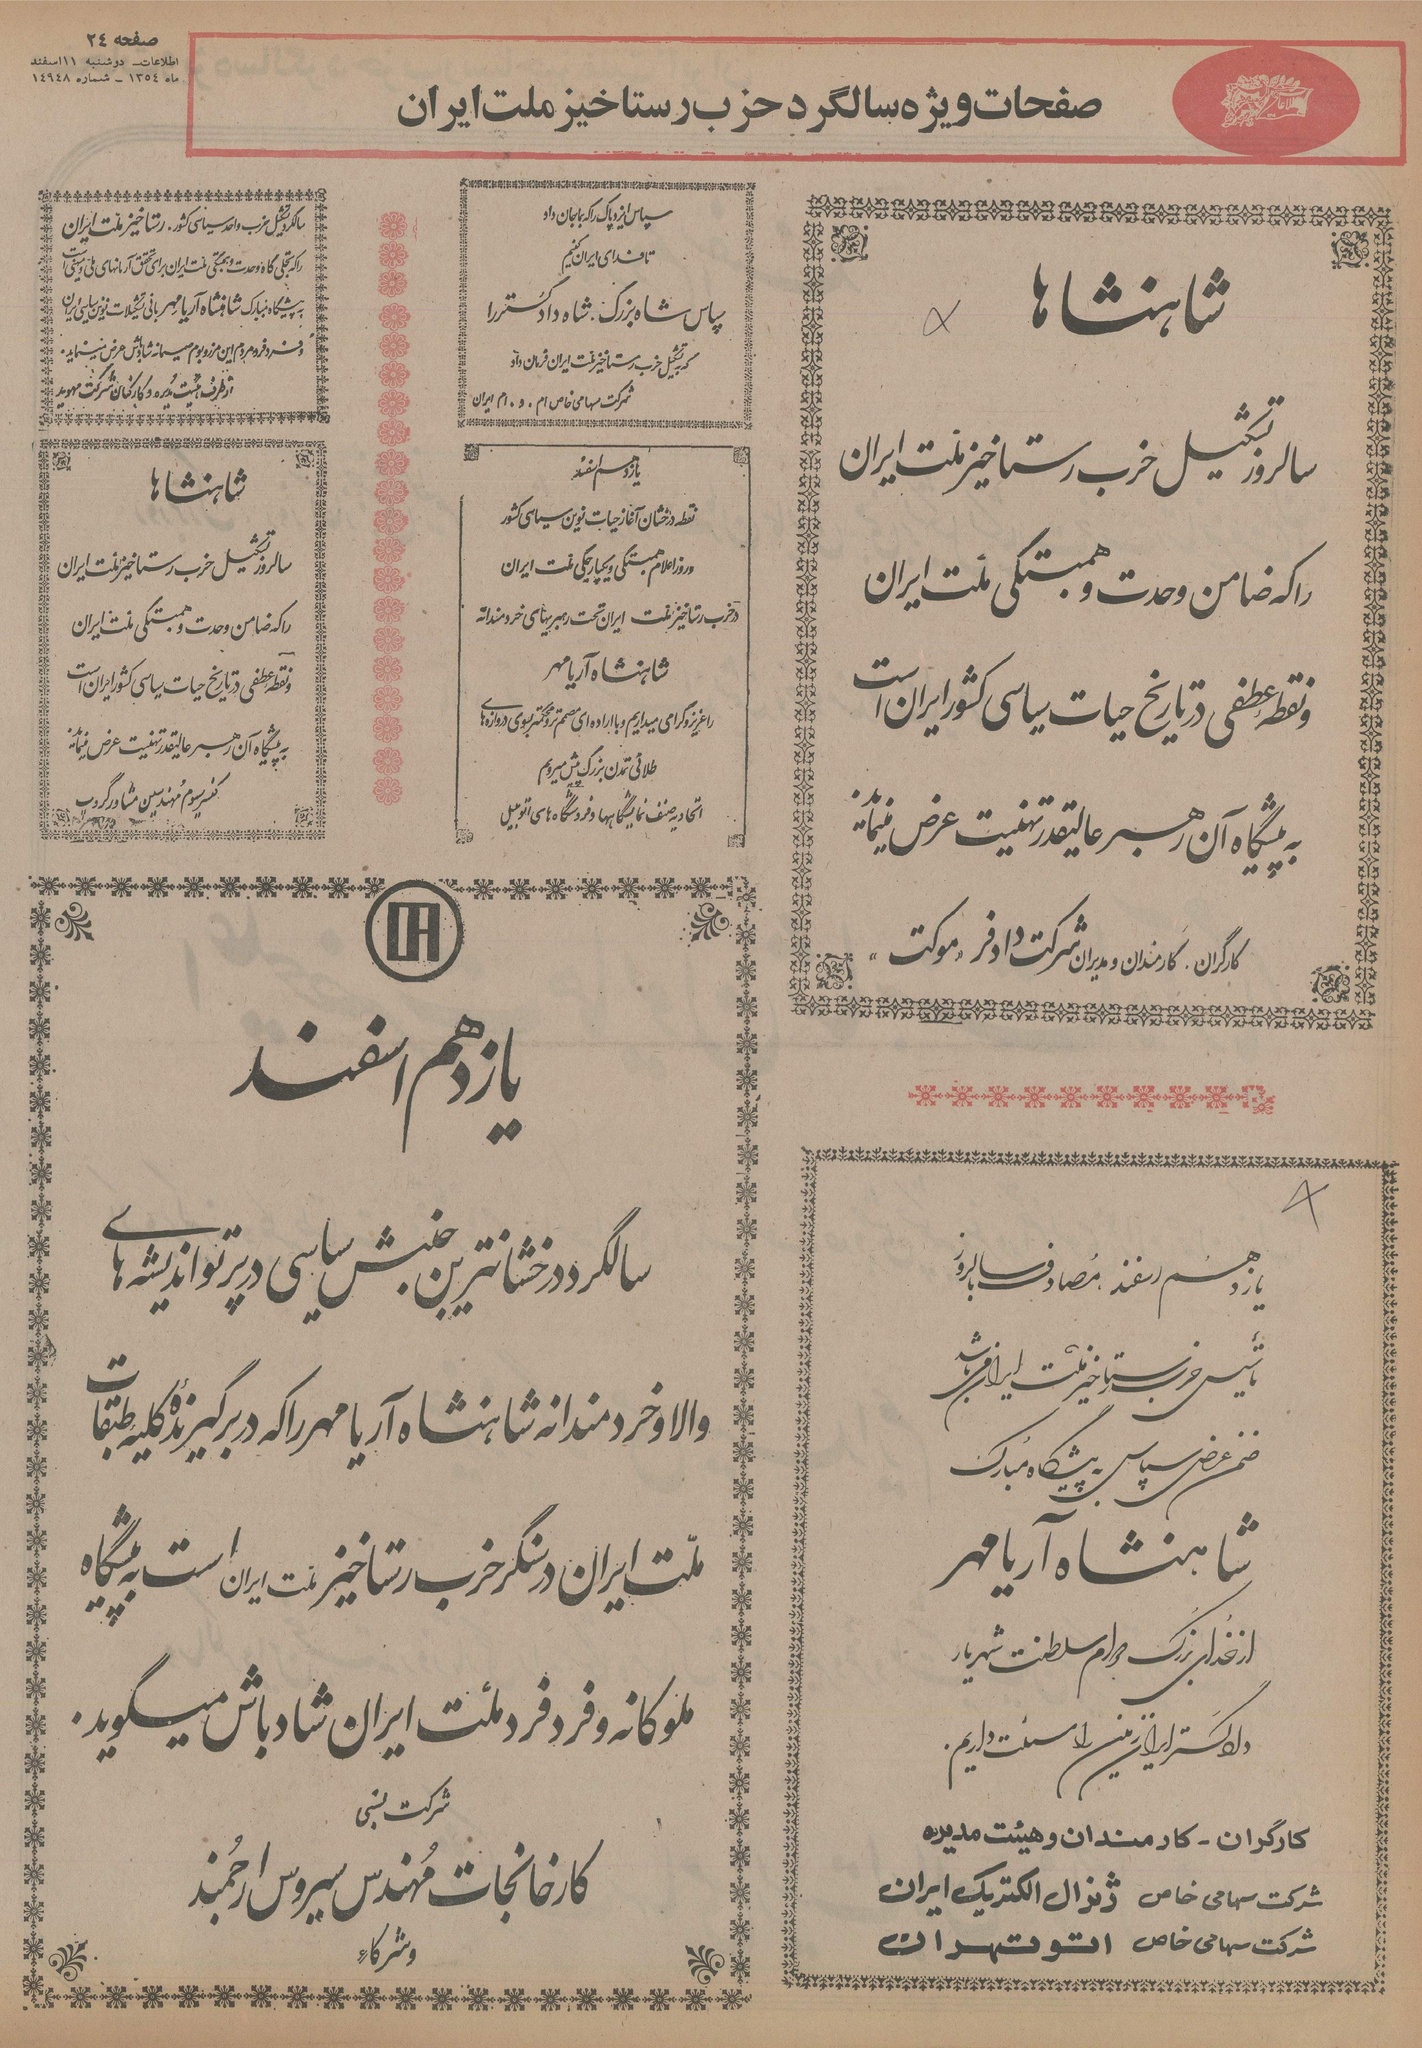 صفحه ۲۴
اطلاعات - دوشنبه ۱۱ اسفند
ماه ۱۳۵۴ - شماره ۱۴۹۴۸
صفحات ویژه سالگرد حزب رستاخیز ملت ایران
شاهنشاها
سالروز تشکیل حزب رستاخیز ملت ایران
را که ضامن وحدت و همبستگی ملت ایران
و نقطه عطفی در تاریخ حیات سیاسی کشور ایران است
به پیشگاه آن رهبر عالیقدر تهنیت عرض مینماید
کارگران . کارمندان و مدیران شرکت دادفر «موکت»
سپاس ایزد پاک را که بما جان داد
تا فدای ایران کنیم
سپاس شاه بزرگ . شاه دادگستر را
که بتشکیل حزب رستاخیز ملت ایران فرمان داد
شرکت سهامی خاص ام . و . ام ایران
سالگرد تشکیل حزب واحد سیاسی کشور . رستاخیز ملت ایران
را که تجلی گاه وحدت و همبستگی ملت ایران برای تحقق آرمانهای ملی و میهنی است
به پیشگاه مبارک شاهنشاه آریامهر بانی تشکیلات نوین سیاسی ایران
و فرد فرد مردم این مرز و بوم صمیمانه شادباش عرض مینماید .
از طرف هیئت مدیره و کارکنان شرکت مهوید
یازدهم اسفند
نقطه درخشان آغاز حیات نوین سیاسی کشور
و روز اعلام همبستگی و یکپارچگی ملت ایران
در حزب رستاخیز ملت ایران تحت رهبریهای خردمندانه
شاهنشاه آریامهر
را عزیز و گرامی میداریم و با اراده ای مصمم تر و محکمتر بسوی دروازه های
طلائی تمدن بزرگ پیش میرویم
اتحادیه صنف نمایشگاهها و فروشگاه های اتومبیل
شاهنشاها
سالروز تشکیل حزب رستاخیز ملت ایران
را که ضامن وحدت و همبستگی ملت ایران
و نقطه عطفی در تاریخ حیات سیاسی کشور ایران است
به پیشگاه آن رهبر عالیقدر تهنیت عرض مینماید
کنسرسیوم مهندسین مشاور گروپ
یازدهم اسفند
سالگرد درخشانترین جنبش سیاسی در پرتو اندیشه های
والا و خردمندانه شاهنشاه آریامهر را که در برگیرنده کلیه طبقات
ملت ایران در سنگر حزب رستاخیز ملت ایران است به پیشگاه
ملوکانه و فرد فرد ملت ایران شادباش میگوید .
شرکت نسبی
کارخانجات مهندس سیروس ارجمند
و شرکاء
یازدهم اسفند مصادف با سالروز
تأسیس حزب رستاخیز ملت ایران می باشد
ضمن عرض سپاس به پیشگاه مبارک
شاهنشاه آریامهر
از خدای بزرگ دوام سلطنت شهریار
دادگستر ایران زمین را مسئلت داریم .
کارگران - کارمندان و هیئت مدیره
شرکت سهامی خاص ژنرال الکتریک ایران
شرکت سهامی خاص اتو تهران